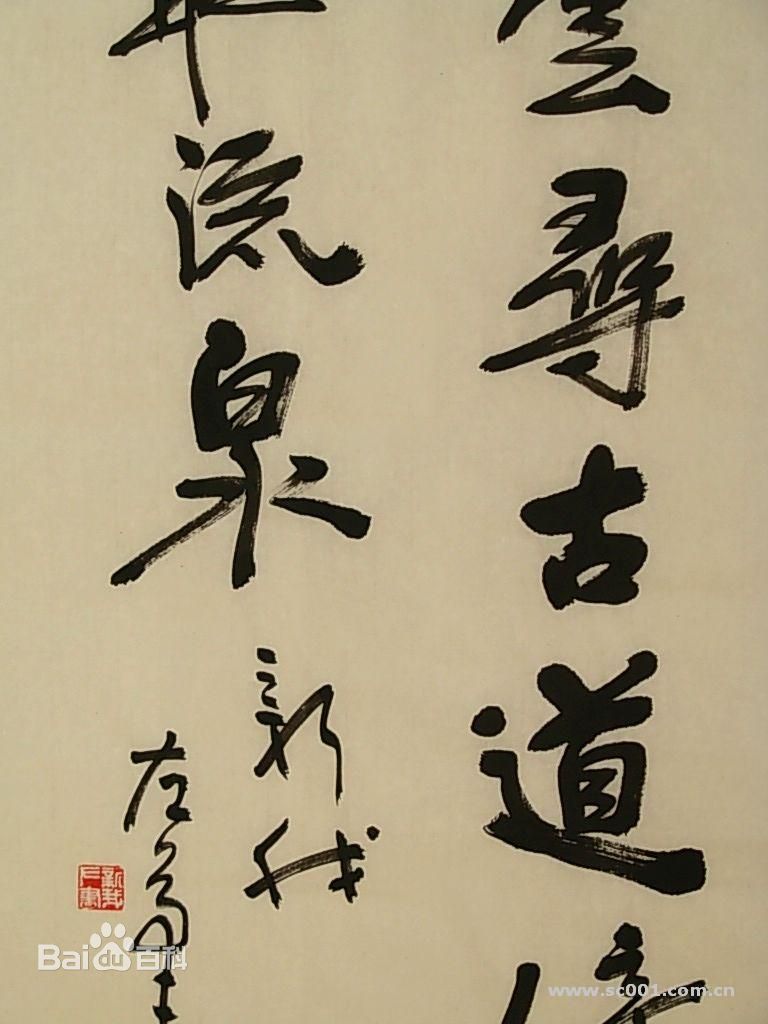 雲尋古道倚
流泉
新我
左
Baidu百科
www.sc001.com.cn